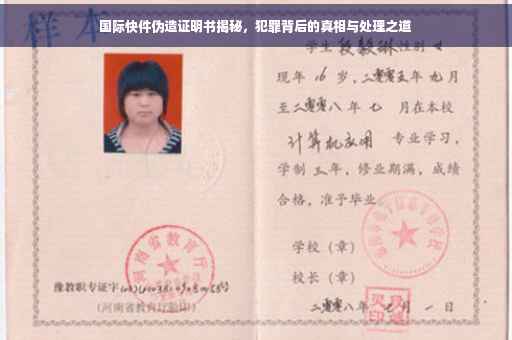 样本
国际快件伪造证明书揭秘，犯罪背后的真相与处理之道
学生段毅琳性别女
现年16岁，二零零五年九月
至二零零八年七月在本校
计算机应用 专业学习，
学制三年，修业期满，成绩
合格，准予毕业。
学校（章）
校长（章）
二零零八年七月一日
河南省教育厅
豫教职专证字
(河南省教育厅验印)